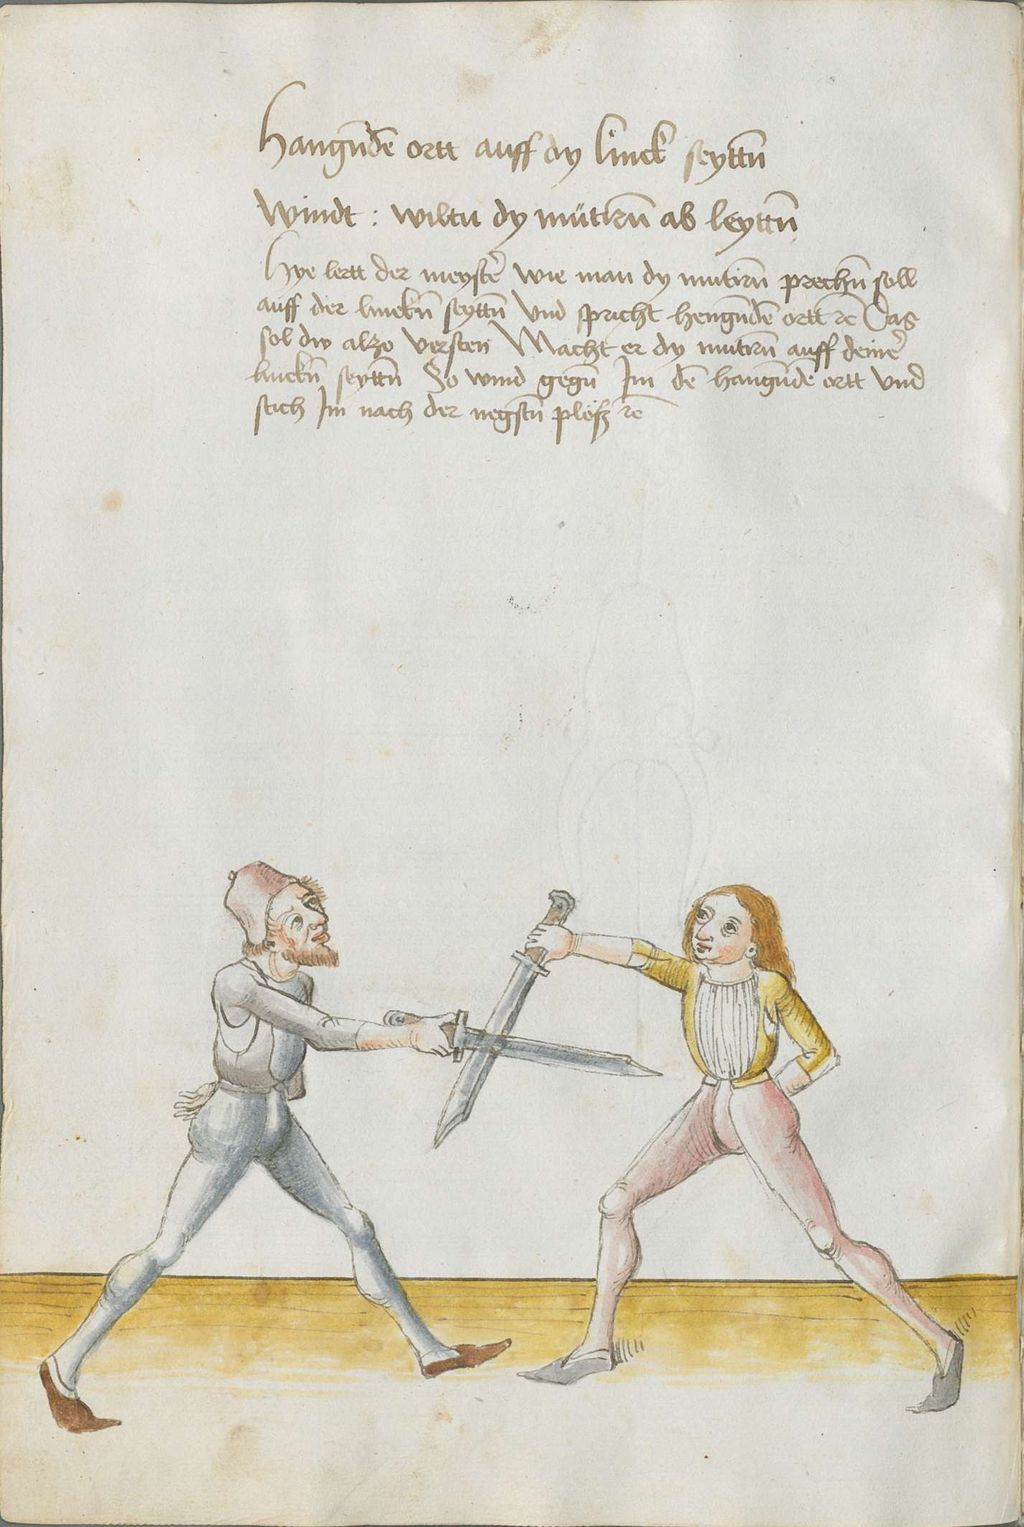 Hangũdẽ ortt auff dy linck seyttũ
Windt : wiltu dy mütirũ ab leyttñ
Hye lertt der meystẽ wie man dy mutirũ prechñ soll
auff der linckñ seyttñ Vnd spricht hengũdẽ ortt rc Das
sol dw alzo versten Macht er dy mutirũ auff deinẽ
linckñ seyttñ So wind gegñ Im dẽ hangũdẽ ortt vnd
stich Im nach der negstñ plosz rc